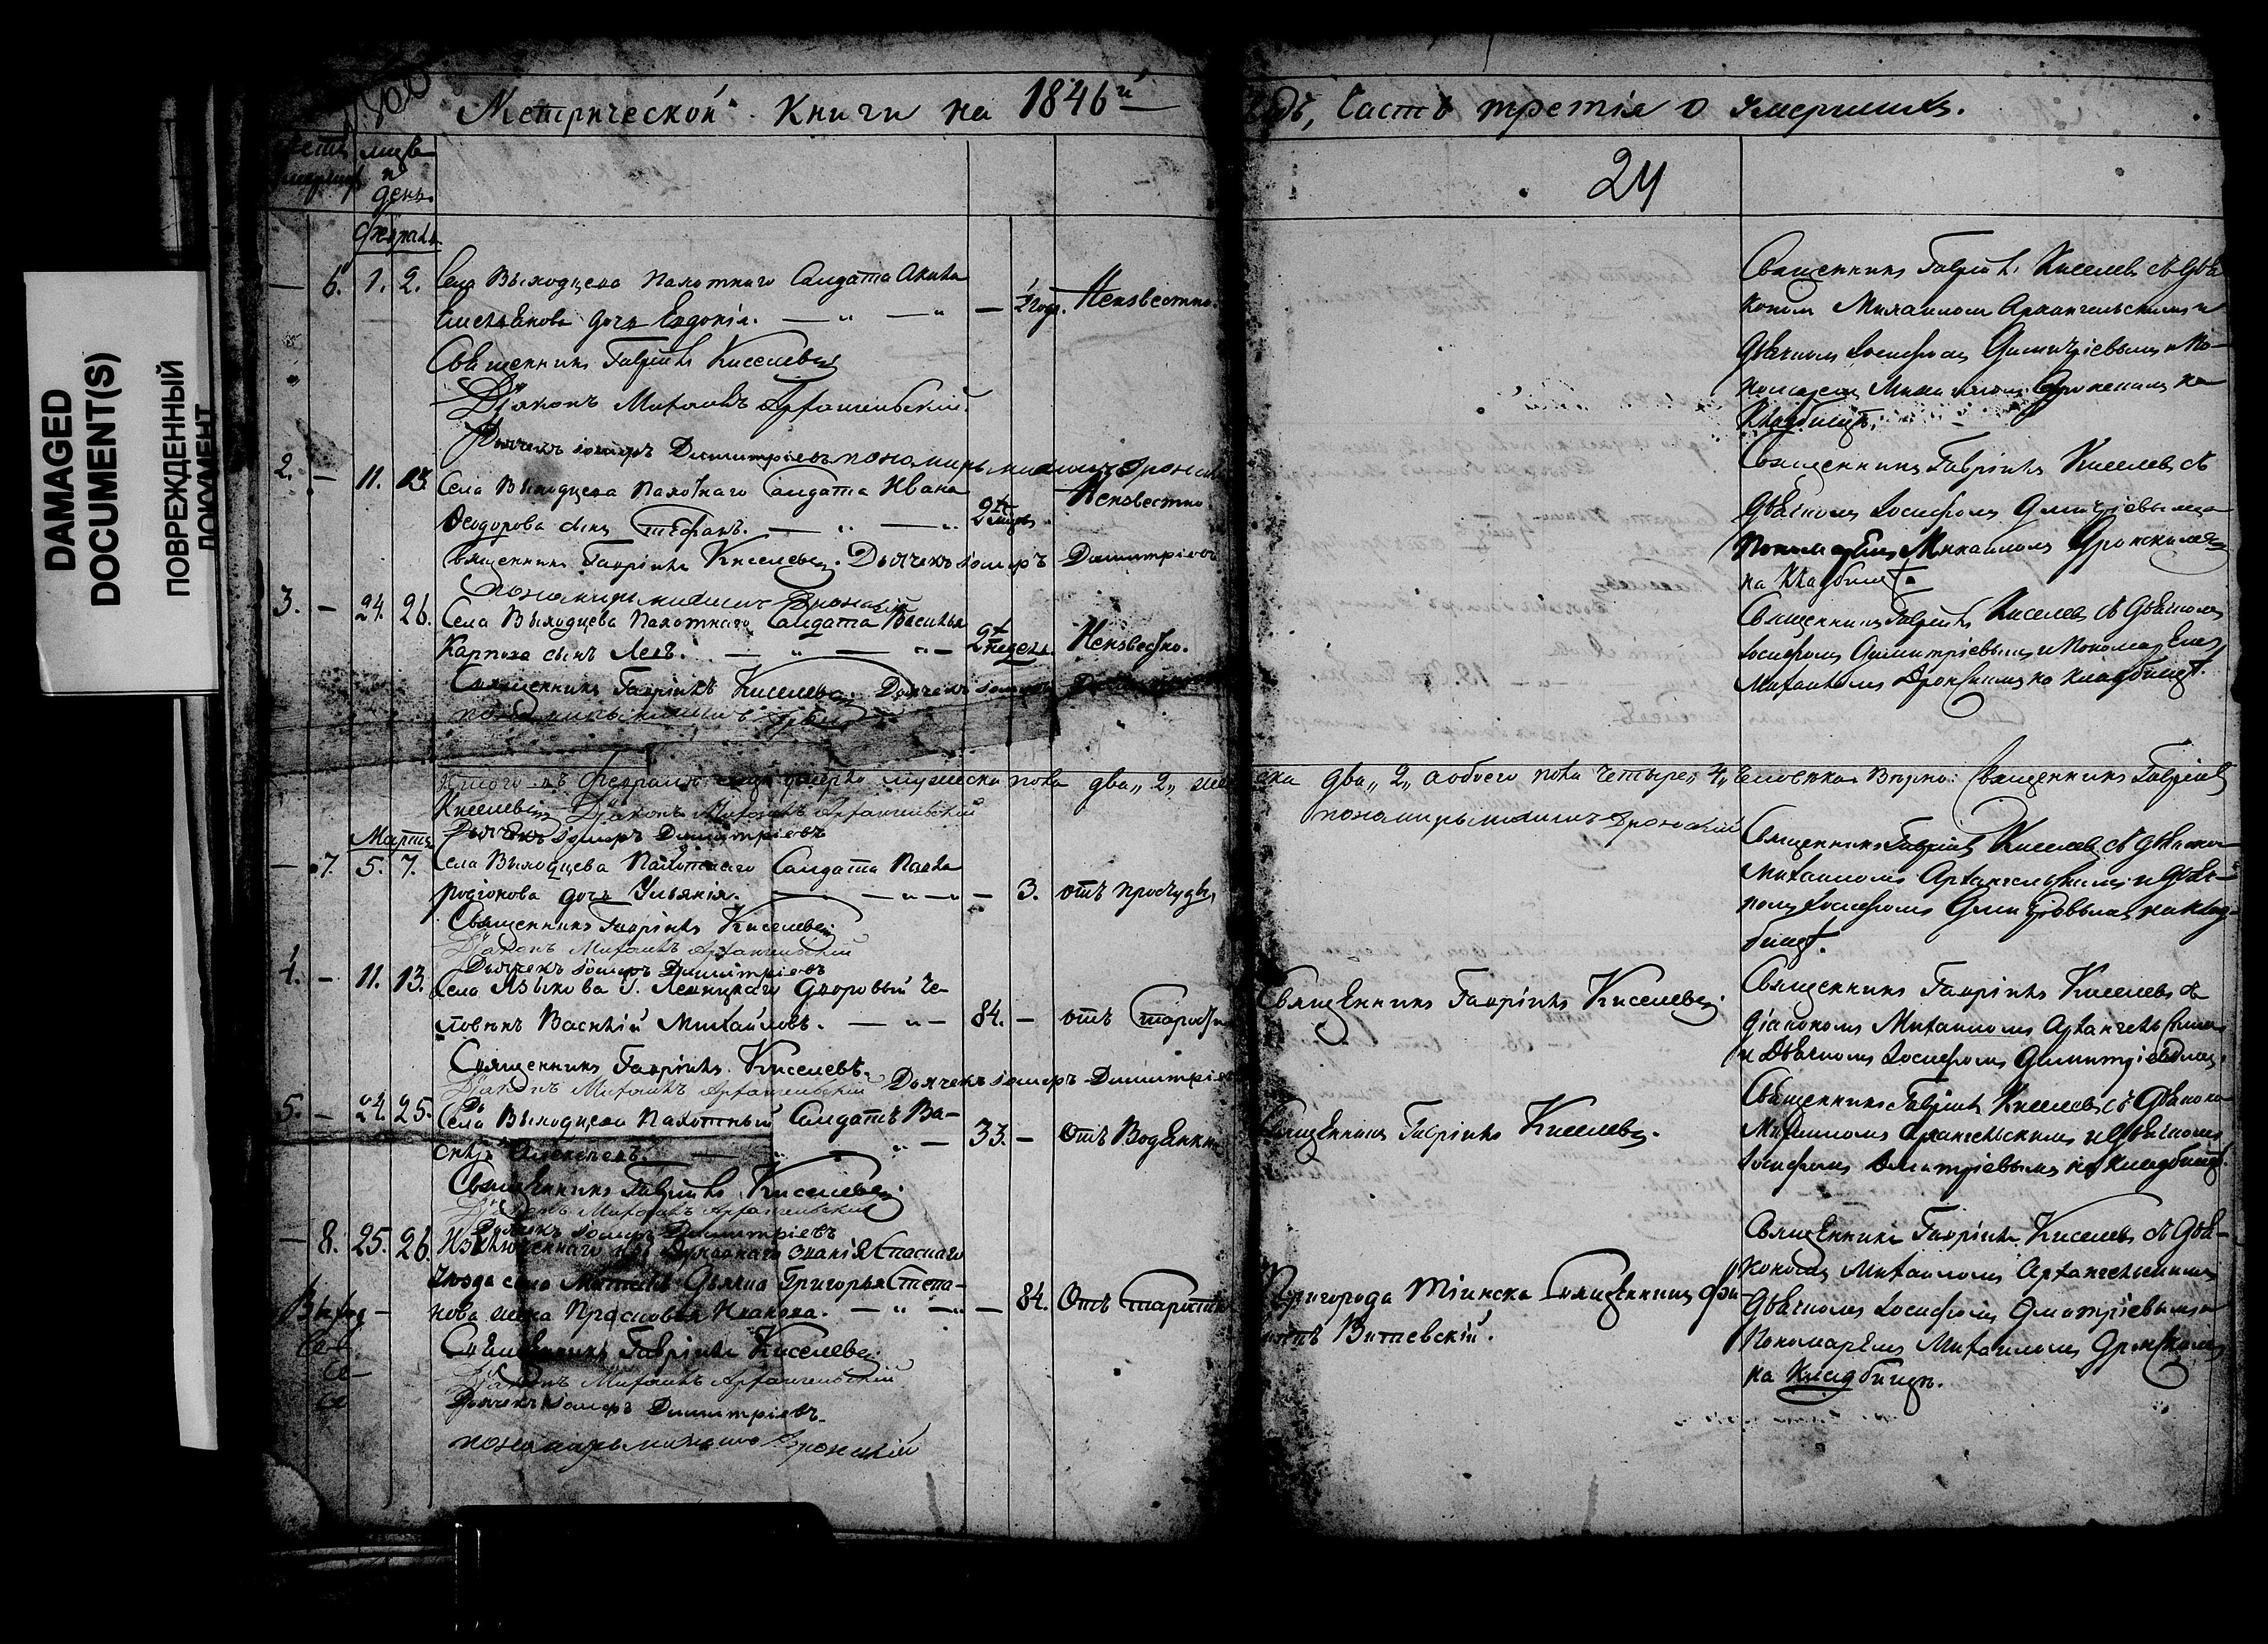 DAMAGED
DOCUMENT(S)
ПОВРЕЖДЕННЫЙ
ДОКУМЕНТ
Метрической Книги на 1846й
годъ, Часть третія о умершихъ.
24
и
день.
Февраль
— 6. 1. 2. Села Выходцева Пахотнаго Салдата
дочь Евдокія. — „ — „ — 1/2 год. Неизвестно.
Священникъ Гавріилъ Киселевъ
Діаконъ Михаилъ Архангельскій.
Дьячекъ Іосифъ Димитріевъ пономарь михаилъ
Священникъ Гавріилъ Киселевъ съ Діа
кономъ Михаиломъ Архангельскимъ и
Дьячкомъ Іосифомъ Димитріевымъ и По-
номаремъ Михаиломъ на
Кладбищѣ.
2. — 11. 13. Села Выходцева Пахотнаго Салдата Ивана
Ѳеодорова сынъ Стефанъ. — „ — „ Неизвестно
Священникъ Гавріилъ Киселевъ. Дьячекъ Іосифъ Димитріевъ
пономарь михаилъ
Священникъ Гавріилъ Киселевъ съ
Дьячкомъ Іосифомъ Димитріевымъ и
Пономаремъ Михаиломъ
на Кладбищѣ.
3. — 24. 26. Села Выходцева Пахотнаго Салдата Василья
Карпова сынъ Левъ. — „ — „ — недель. Неизвестно.
Священникъ Гавріилъ Киселевъ. Дьячекъ Іосифъ
пономарь михаилъ
Священникъ Гавріилъ Киселевъ съ Дьячкомъ
Іосифомъ Димитріевымъ и Пономаремъ
Михаиломъ на кладбищѣ.
Итого въ Февралѣ умерло мужеска пола два „2„ женска два „2„ а обоего пола четыре „4„ человека. Верно: Священникъ Гавріилъ
Киселевъ Діаконъ Михаилъ Архангельскій
Дьячекъ Іосифъ Димитріевъ
пономарь михаилъ
Мартъ
— 7. 5. 7. Села Выходцева Пахотнаго Салдата Павла
Родіонова дочь Ульянія. — „ — „ — 3. отъ простуды
Священникъ Гавріилъ Киселевъ
Діаконъ Михаилъ Архангельскій
Дьячекъ Іосифъ Димитріевъ
Священникъ Гавріилъ Киселевъ съ Діакономъ
Михаиломъ Архангельскимъ и Дьяч-
комъ Іосифомъ Димитріевымъ на клад-
бищѣ.
4. — 11. 13. Села Языкова Г. Дворовый Че-
ловекъ Василій Михайловъ. — „ — 84. — отъ старости
Священникъ Гавріилъ Киселевъ.
Діаконъ Михаилъ Архангельскій Дьячекъ Іосифъ Димитріевъ
Священникъ Гавріилъ Киселевъ.
Священникъ Гавріилъ Киселевъ съ
Діакономъ Михаиломъ Архангельскимъ
и Дьячкомъ Іосифомъ Димитріевымъ.
5. — 24. 25. Села Выходцева Пахотный Салдатъ Ва-
силій Алексеевъ. — „ — „ — 33. — Отъ Водянки
Священникъ Гавріилъ Киселевъ.
Діаконъ Михаилъ Архангельскій
Дьячекъ Іосифъ Димитріевъ
Священникъ Гавріилъ Киселевъ.
Священникъ Гавріилъ Киселевъ съ Діакономъ
Михаиломъ Архангельскимъ и Дьячкомъ
Іосифомъ Димитріевымъ на кладбищѣ.
— 8. 25. 26. Исключеннаго изъ Духовнаго званія Спаскаго
Уезда села Дьячка Григорья Степа-
нова жена Прасковья Иванова. — „ — „ — 84. Отъ старости
Священникъ Гавріилъ Киселевъ
Діаконъ Михаилъ Архангельскій
Дьячекъ Іосифъ Димитріевъ
пономарь михаилъ
Пригорода Тіинска Священникъ
Витевскій.
Священникъ Гавріилъ Киселевъ съ Діа-
кономъ Михаиломъ Архангельскимъ
Дьячкомъ Іосифомъ Димитріевымъ и
Пономаремъ Михаиломъ
на Кладбищѣ.